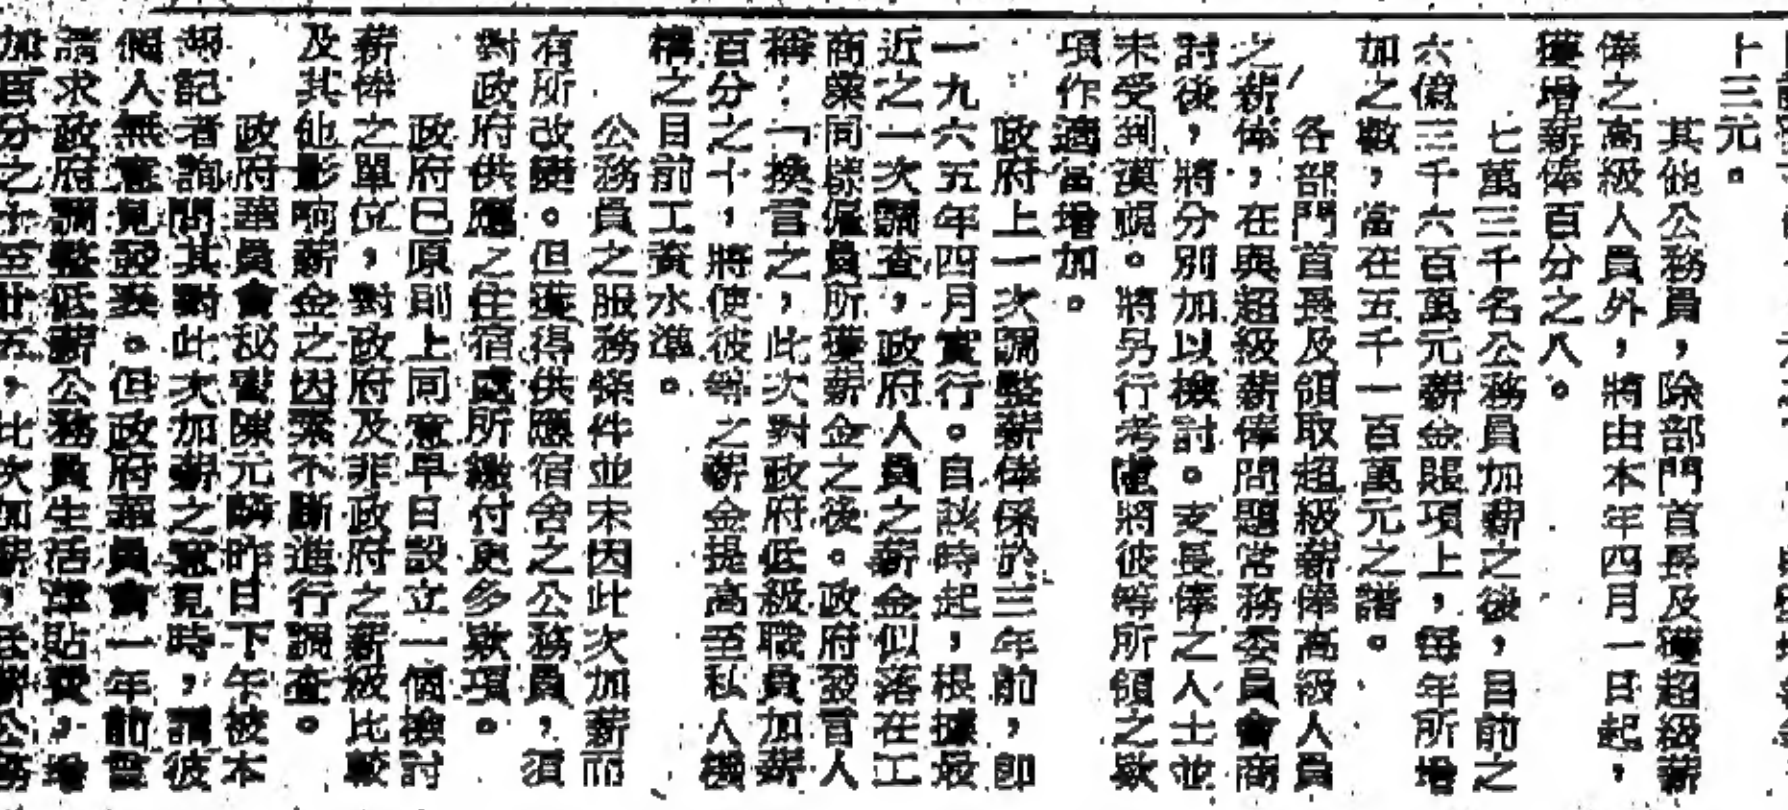 卜三元。
其他公務員，除部門首長及獲超級薪
俸之高級人員外，將由本年四月一日起，
獲增薪俸百分之八。
七萬三千名公務員加薪之後，目前之
六億三千六百萬元薪金賬項上，每年所增
加之數，當在五千一百萬元之譜。
各部門首長及領取超級薪俸高級人員
之薪俸，在與超級薪俸問題常務委員會商
討後，將分別加以檢討。支長俸之人士並
未受到漠視。將另行考慮將彼等所領之款
項作適當增加。
政府上一次調整薪俸係於三年前，即
一九六五年四月實行。自該時起，根據最
近之一次調查，政府人員之薪金似落在工
商業同樣僱員所獲薪金之後。政府發言人
稱：「換言之，此次對政府低級職員加薪
百分之十，將使彼等之薪金提高至私人機
構之目前工資水準。
公務員之服務條件並未因此次加薪而
有所改變。但獲得供應宿舍之公務員，須
對政府供應之住宿處所繳付更多款項。
政府已原則上同意早日設立一個檢討
薪俸之單位，對政府及非政府之薪級比較
及其他影响薪金之因素不斷進行調查。
政府華員會秘書陳元麟昨日下午被本
報記者詢問其對此次加薪之意見時，謂彼
個人無意見發表。但政府華員會一年前曾
請求政府調整低薪公務員生活津貼費，增
加百分之十至廿五，此次加薪，低薪公務